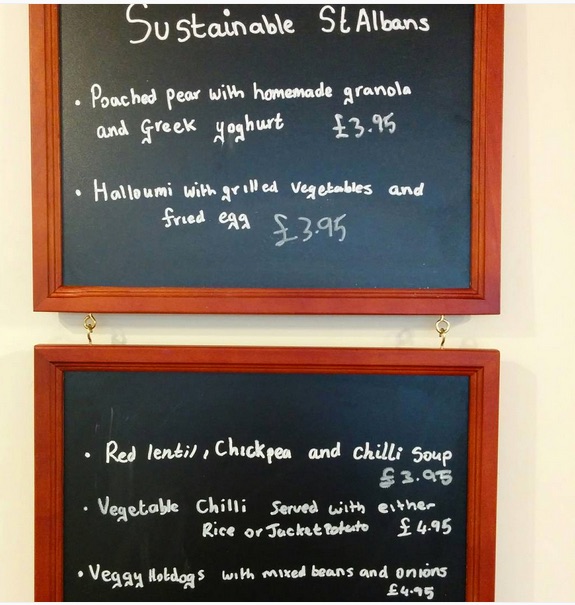 Sustainable St Albans
• Poached pear with homemade granola
and Greek yoghurt £3.95
• Halloumi with grilled vegetables and
fried egg £3.95
• Red lentil, Chickpea and chilli Soup
£3.95
• Vegetable Chilli Served with either
Rice or Jacket Potato £4.95
• Veggy Hotdogs with mixed beans and onions
£4.95